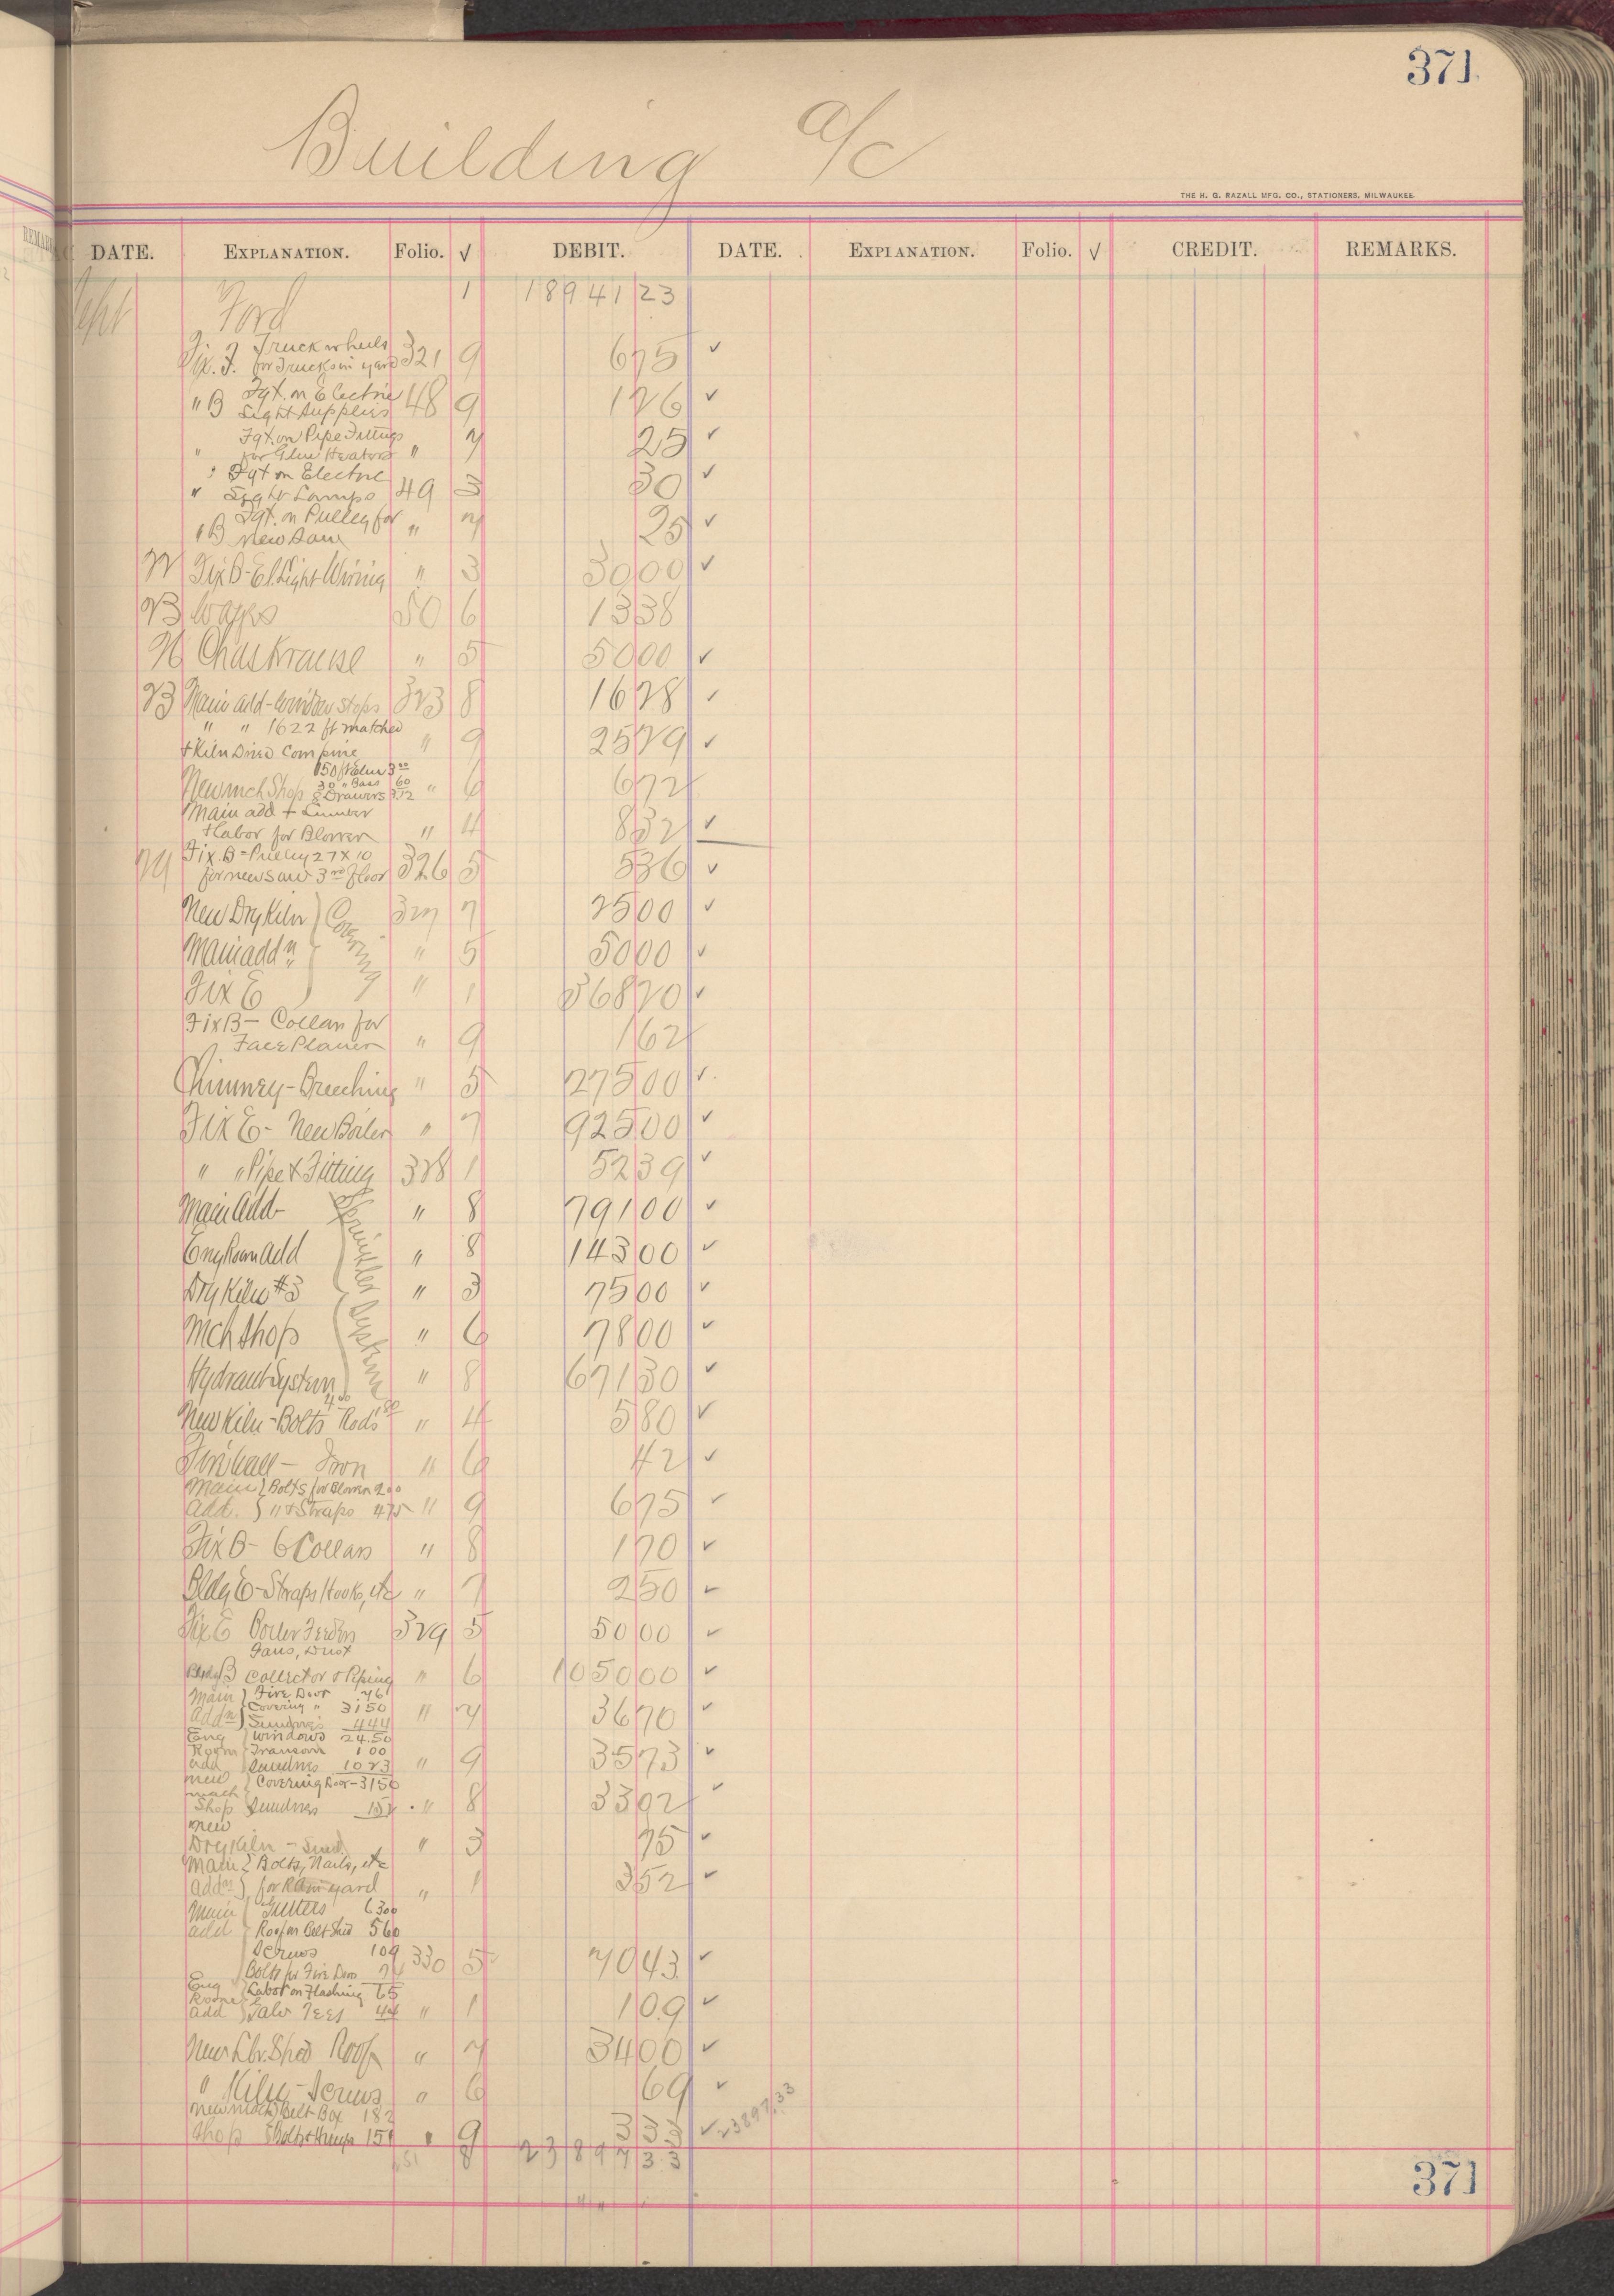 371
Building a/c
THE H. G. RAZALL MFG. CO., STATIONERS, MILWAUKEE.
DATE. EXPLANATION. Folio. √ DEBIT. DATE. EXPLANATION. Folio. √ CREDIT. REMARKS.
Sept Ford 1 18941 23
Truck wheels
Fix. J. for Trucks in yard 321 9 6 75 ✓
Fgt. on Electric
" B Light Supplies 48 9 1 26 ✓
Fgt. on Pipe Fittings
" for Glue Heaters " 7 25 ✓
Fgt on Electric
" Light Lamps 49 3 30 ✓
Fgt. on Pulley for
" B New Saw " 7 25 ✓
22 Fix B - El. Light Wiring " 3 30 00 ✓
23 Wages 50 6 13 38
Chas Krause " 5 50 00 ✓
23 Main add - Window stops 323 8 16 28 ✓
" " 1622 ft matched
+ Kiln Dried Com pine " 9 25 79 ✓
150 ft Elm 3 00
30 " Bass 60
New mch Shop 8 Drawers 3.12 " 6 6 72
Main add + Lumber
+ Labor for Blower " 4 8 32 ✓
Fix. B - Pulley 27 x 10
for new saw 3rd floor 326 5 5 36 ✓
New Dry Kiln } Covering 327 7 25 00 ✓
Main addn " 5 50 00 ✓
Fix E " 1 368 70 ✓
Fix B - Collar for
Face Planer " 9 1 62
Chimney - Breeching " 5 275 00 ✓
Fix E - New Boiler " 7 925 00 ✓
" " Pipe & Fitting 328 1 52 39 ✓
Main Add } Sprinkler System " 8 791 00 ✓
Eng Room Add " 8 143 00 ✓
Dry Kiln #3 " 3 75 00 ✓
Mch Shop " 6 78 00 ✓
Hydrant System " 8 671 30 ✓
New Kiln - Bolts 4 00 Rods 1 80 " 4 5 80 ✓
Fire Wall - Iron " 6 42 ✓
Main } Bolts for Blower 2 00
add. } " + Straps 4 75 " 9 6 75 ✓
Fix B - 6 Collars " 8 1 70 ✓
Bldg E - Straps, Hooks, etc " 7 2 50 ✓
Fix E Boiler Feeders 329 5 50 00 ✓
Fans, Dust
Bldg B Collector & Piping " 6 1050 00 ✓
Main } Fire Door 76
addn } Covering " 31 50
Sundries 4 44 " 7 36 70 ✓
Eng } Windows 24.50
Room } Transom 1 00
add } Sundries 10 23 " 9 35 73 ✓
New } Covering Door - 31 50
mach
Shop Sundries 1 52 " 8 33 02 ✓
New
Dry Kiln - Sund. " 3 75 ✓
Main } Bolts, Nails, etc
addn } for yard " 1 3 52 ✓
Main } Gutters 63 00
add } Roof on Belt Shed 5 60
Screws 1 09
Bolts for Fire Door 74 330 5 70 43 ✓
Eng } Labor on Flashing 65
Room
add } Galv Tees 44 " 1 1 09 ✓
New Lbr. Shed Roof " 7 34 00 ✓
" Kiln - Screws " 6 69 ✓
New Mach } Belt Box 1 82
Shop } Bolts + Hinges 1 51 " 9 3 33 ✓ 23897.33
51 8 23897 33
371